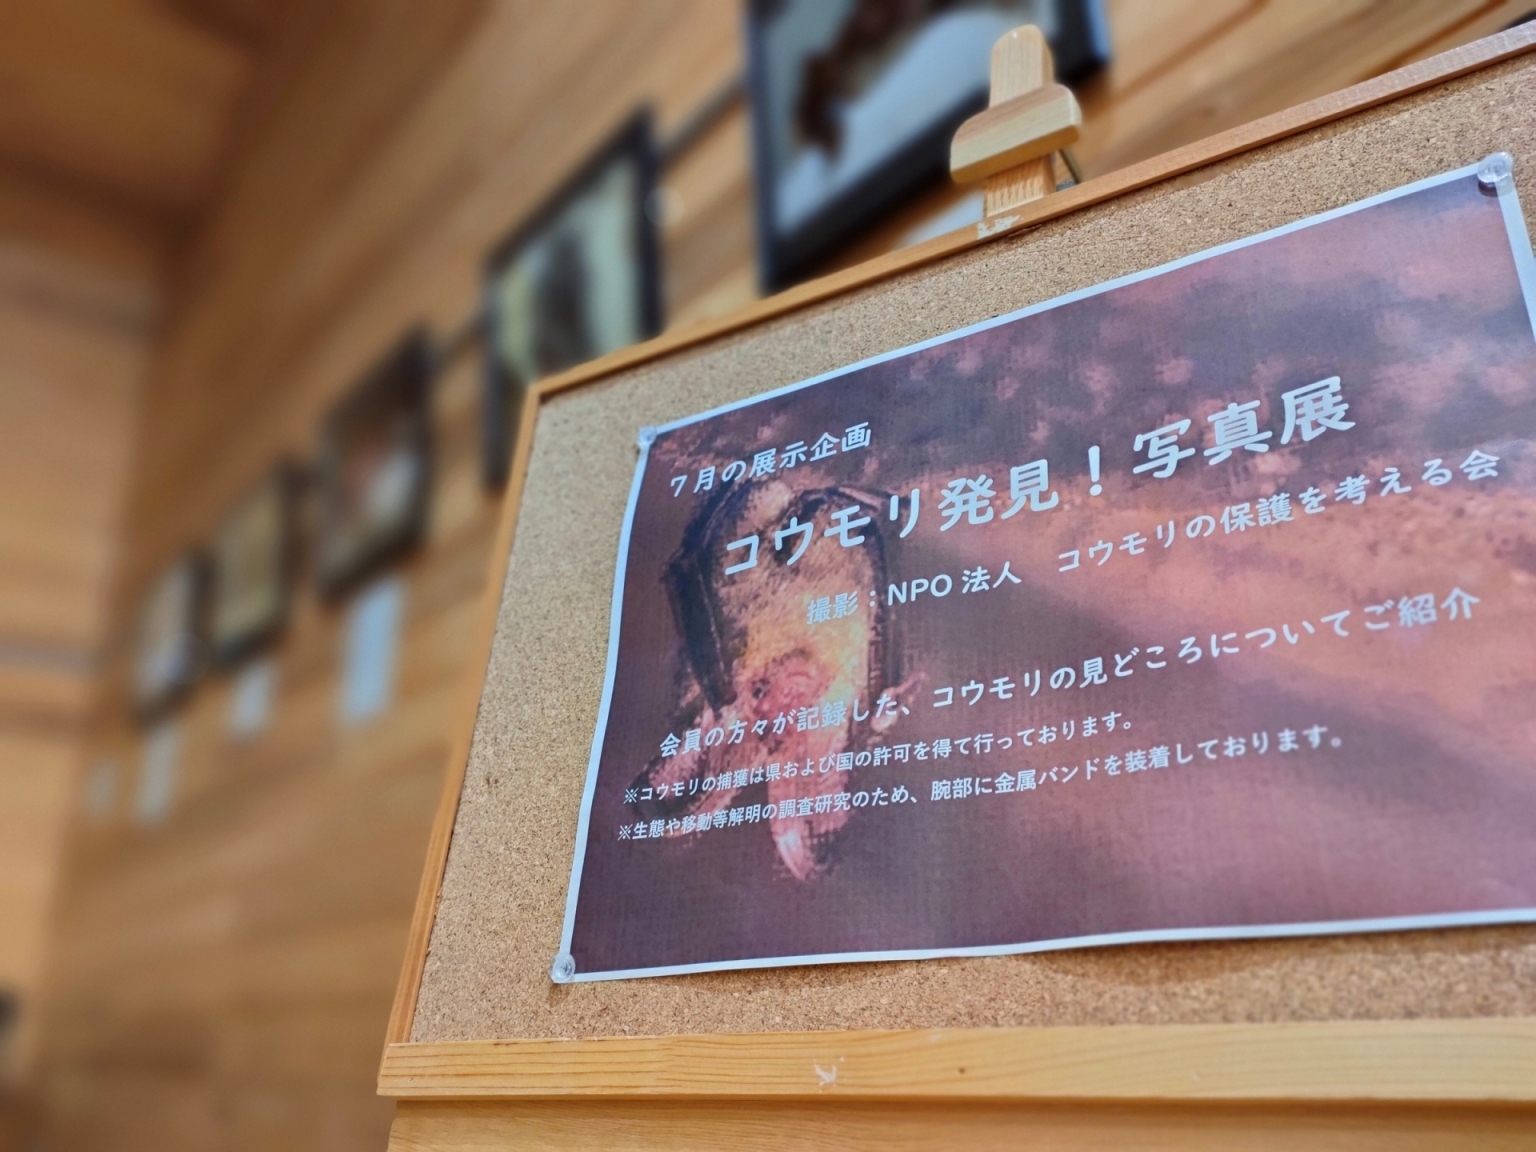 7月の展示企画
コウモリ発見！写真展
撮影：NPO 法人　コウモリの保護を考える会
会員の方々が記録した、コウモリの見どころについてご紹介
※コウモリの捕獲は県および国の許可を得て行っております。
※生態や移動等解明の調査研究のため、腕部に金属バンドを装着しております。